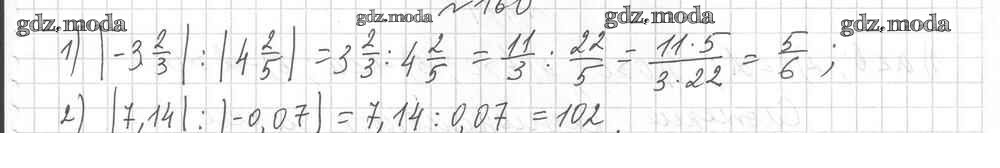 №160
gdz.moda gdz.moda gdz.moda gdz.moda
1) |-3 2/3| : |4 2/5| = 3 2/3 : 4 2/5 = 11/3 : 22/5 = 11·5/3·22 = 5/6 ;
2) |7,14| : |-0,07| = 7,14 : 0,07 = 102.